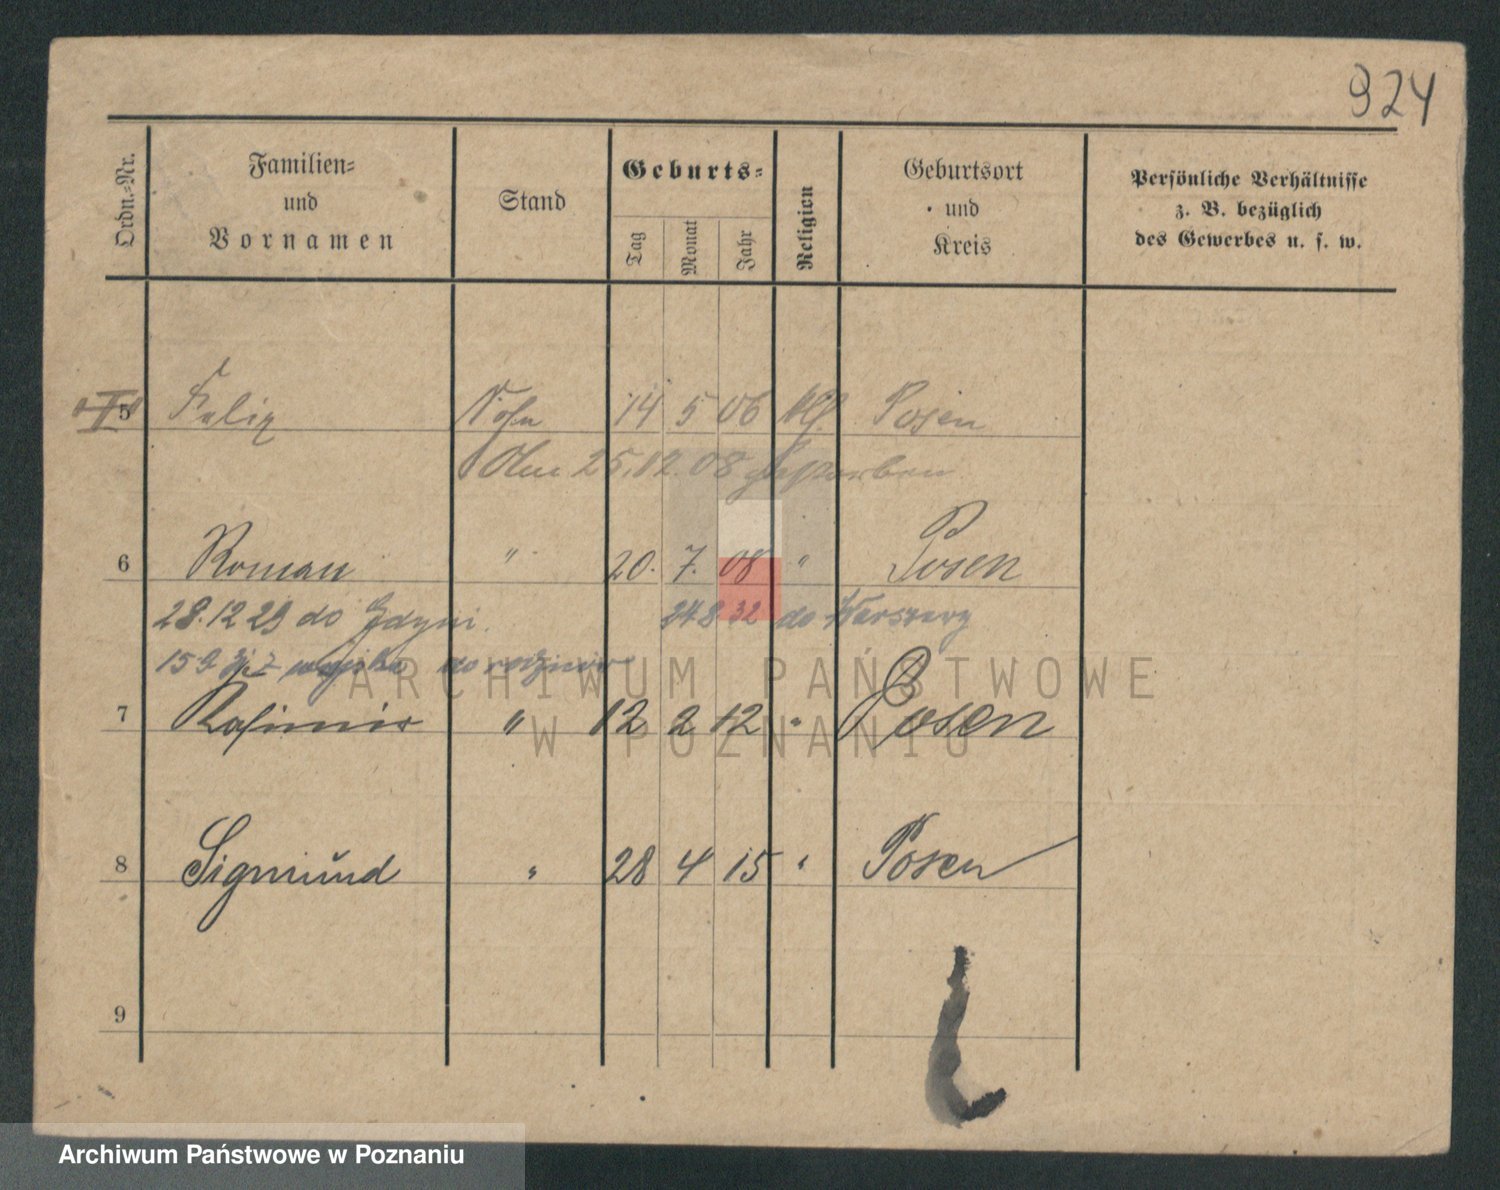 924
Ordn.-Nr.
Familien-
und
Vornamen
Stand
Geburts-
Tag
Monat
Jahr
Religion
Geburtsort
und
Kreis
Persönliche Verhältnisse
z. B. bezüglich
des Gewerbes u. s. w.
5 Felix Sohn 14 5 06 Posen
25.12.08 gestorben
6 Roman " 20. 7. 08 " Posen
28.12 29 do Gdyni. 24 8 32 do Warszawy
15 9 z wojska do rodziców
7 Kasimir " 12 2 12 " Posen
8 Sigmund " 28 4 15 " Posen
9
ARCHIWUM PAŃSTWOWE
W POZNANIU
Archiwum Państwowe w Poznaniu